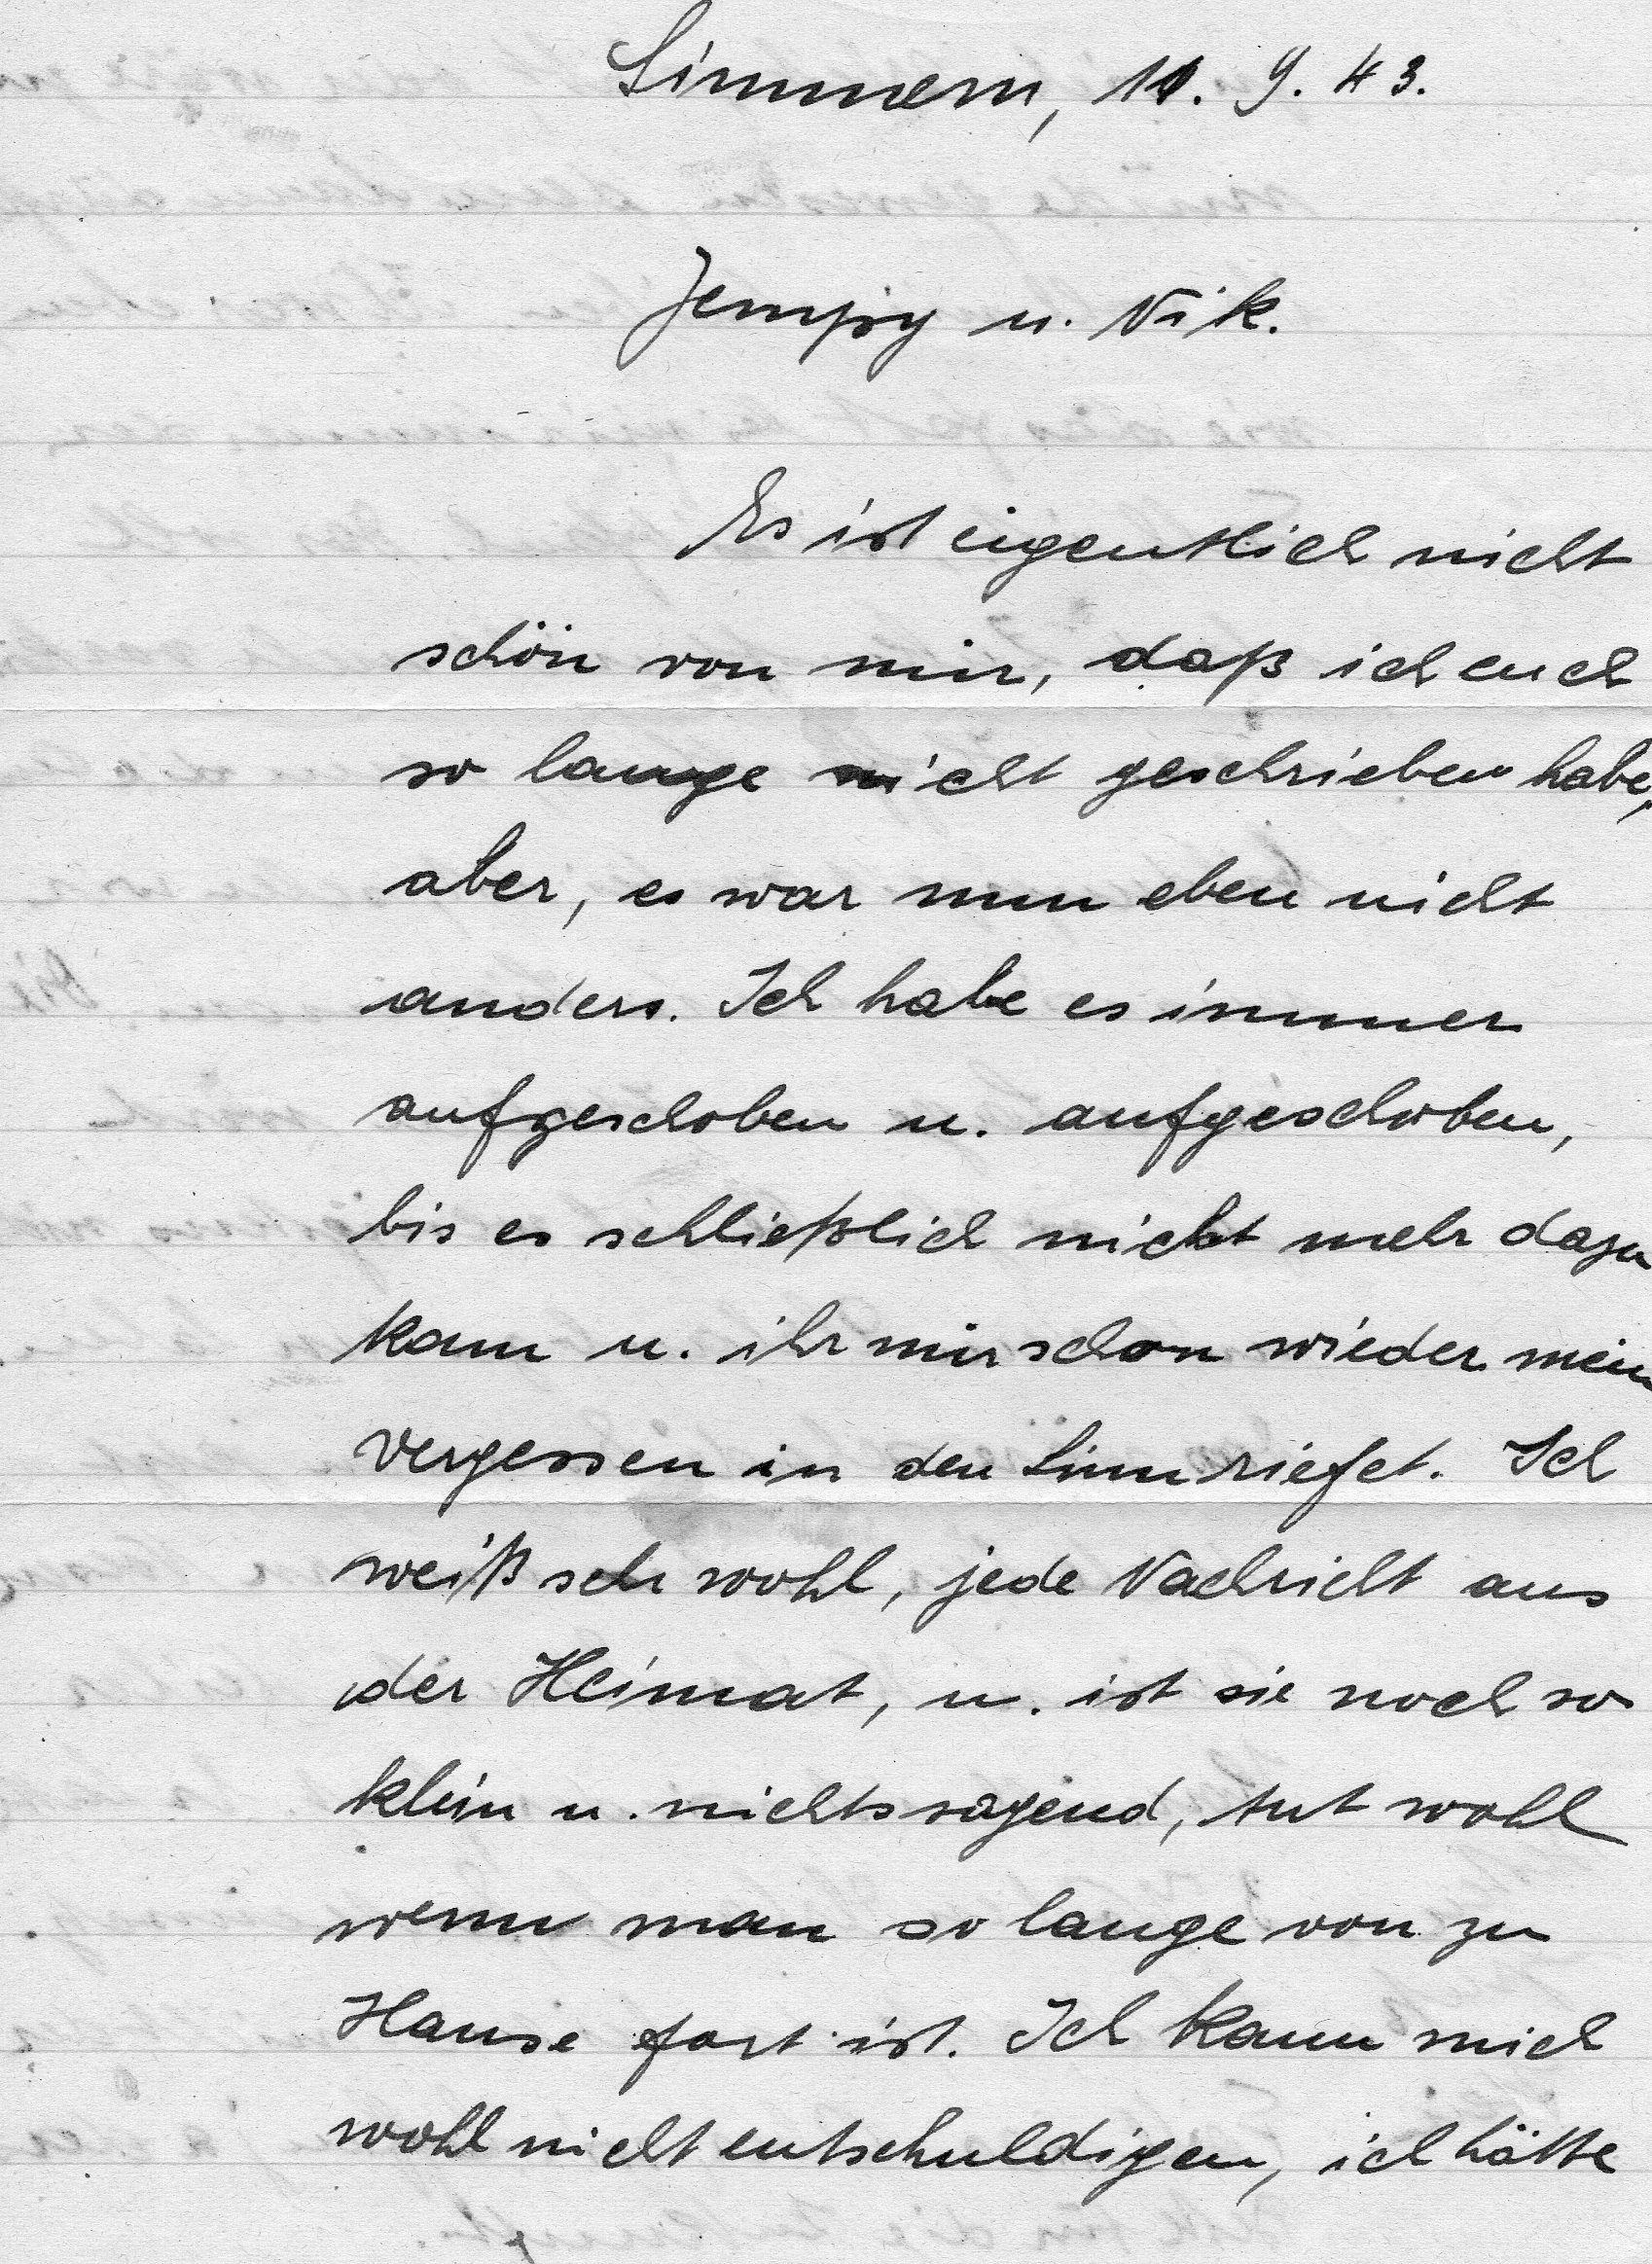 Simmern, 11. 9. 43.
Jempy u. Nik.
Es ist eigentlich nicht
schön von mir, daß ich euch
so lange nicht geschrieben habe,
aber, es war nun eben nicht
anders. Ich habe es immer
aufgeschoben u. aufgeschoben,
bis es schließlich nicht mehr dazu
kam u. ihr mir schon wieder mein
Vergessen in den Sinn riefet. Ich
weiß sehr wohl, jede Nachricht aus
der Heimat, u. ist sie noch so
klein u. nichtssagend, tut wohl
wenn man so lange von zu
Hause fort ist. Ich kann mich
wohl nicht entschuldigen, ich hätte